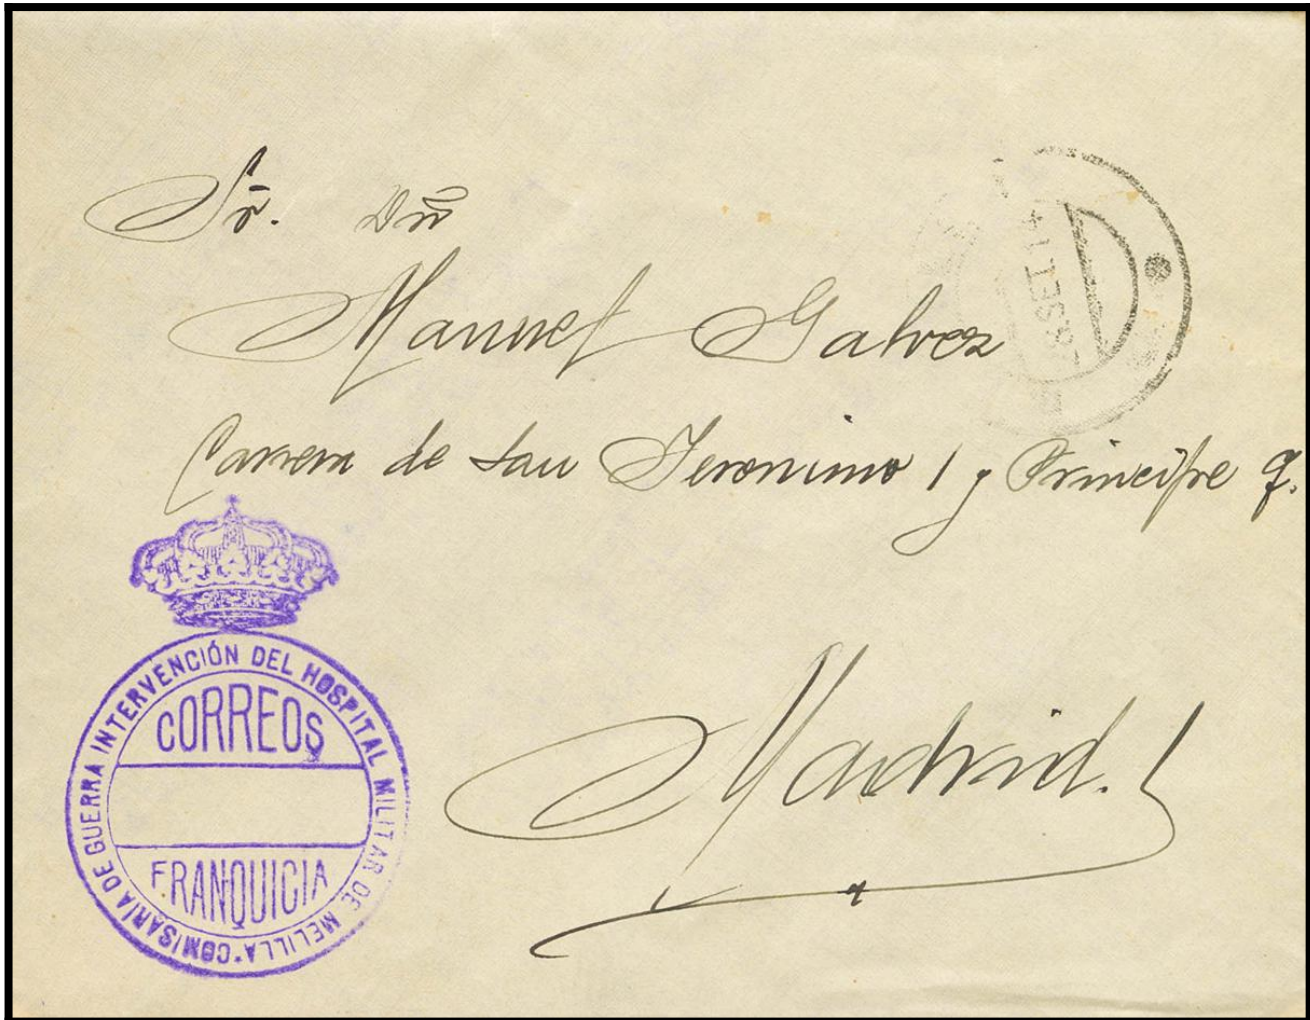 Sr. Dn
Manuel Galvez
Carrera de San Jeronimo 1 y Principe 9.
Madrid.
SET 14
COMISARÍA DE GUERRA INTERVENCIÓN DEL HOSPITAL MILITAR DE MELILLA
CORREOS
FRANQUICIA